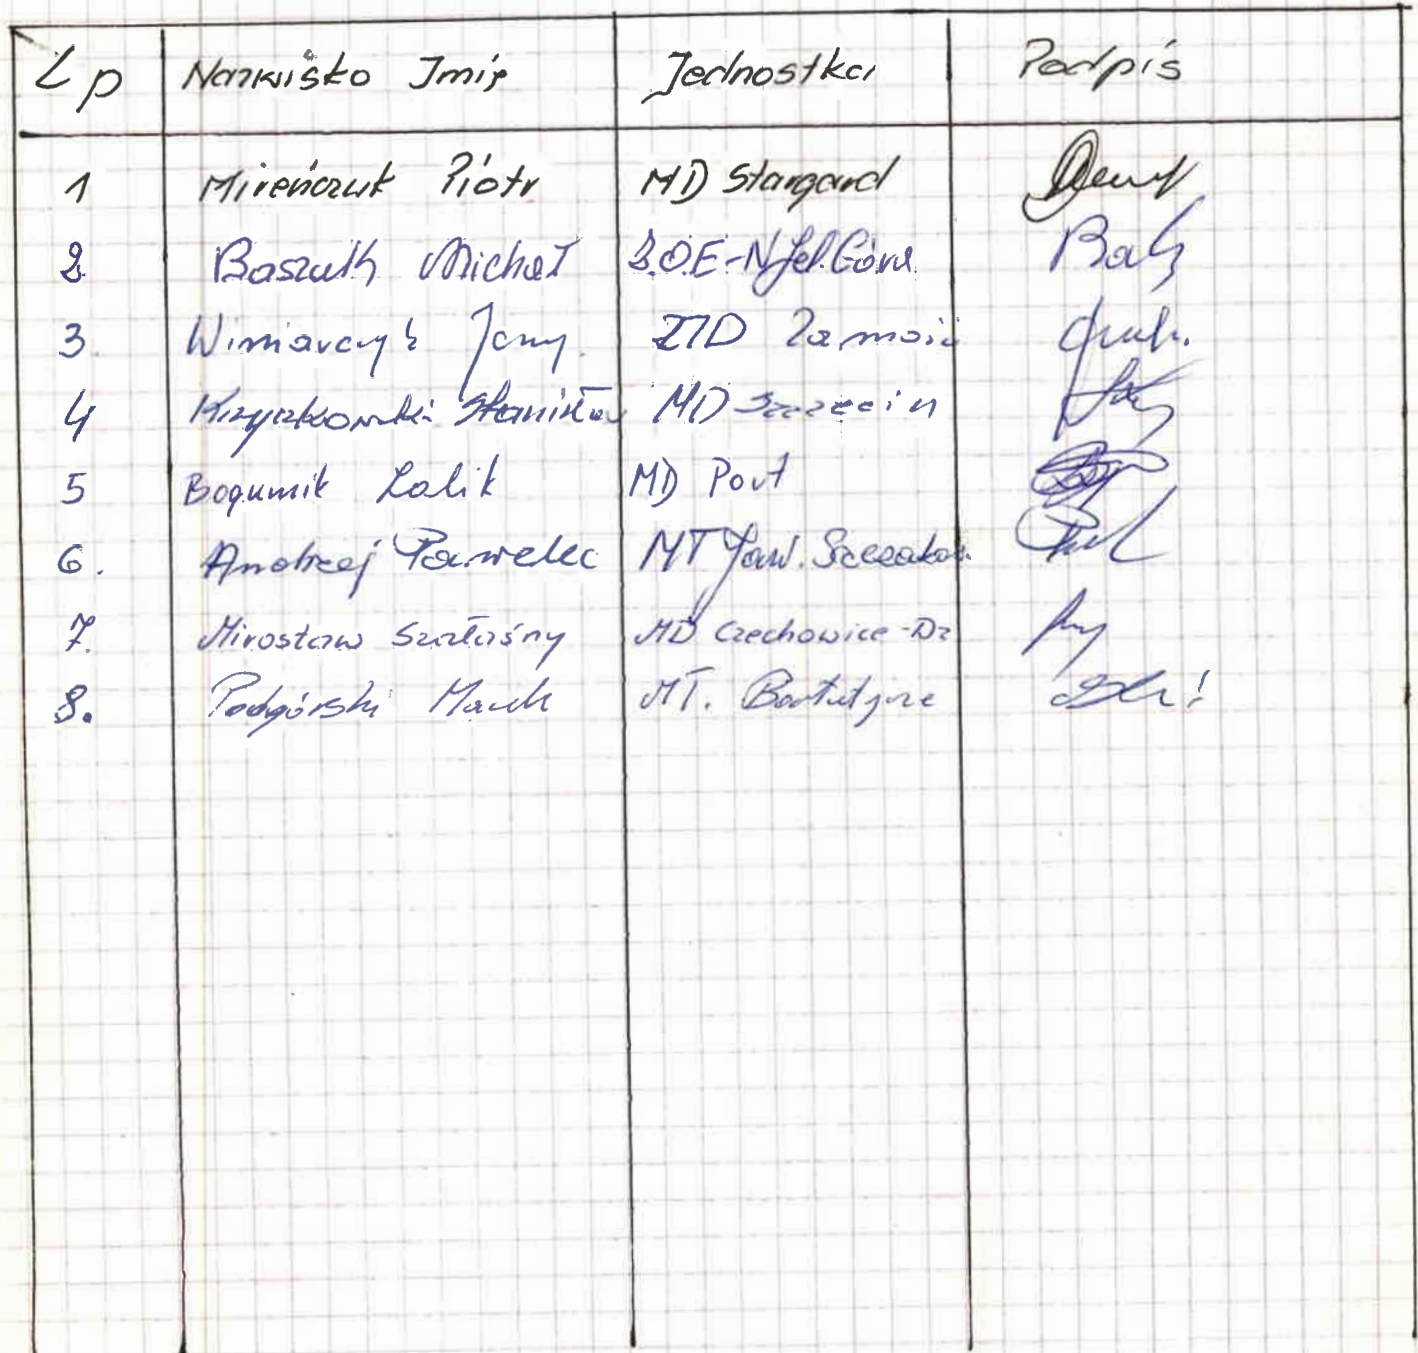 Lp Nazwisko Imię Jednostka Podpis
1 Mireńczuk Piotr MD Stargard
2. Michał Jel. Góra
3. Winiarczyk Jerzy ZTD Zamość
4 Krzyczkowski Stanisław MD Szczecin
5 Bogumił Lalik MD Port
6. Andrzej Pawelec MT Jaw. Szczakow.
7. Mirosław Szałaśny MD Czechowice-Dz
8. Podgórski Marek MT.